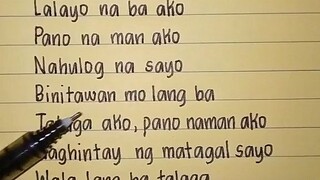 Lalayo na ba ako
Pano na man ako
Nahulog na sayo
Binitawan mo lang ba
ako, pano naman ako
ng matagal sayo
lang ba talaga